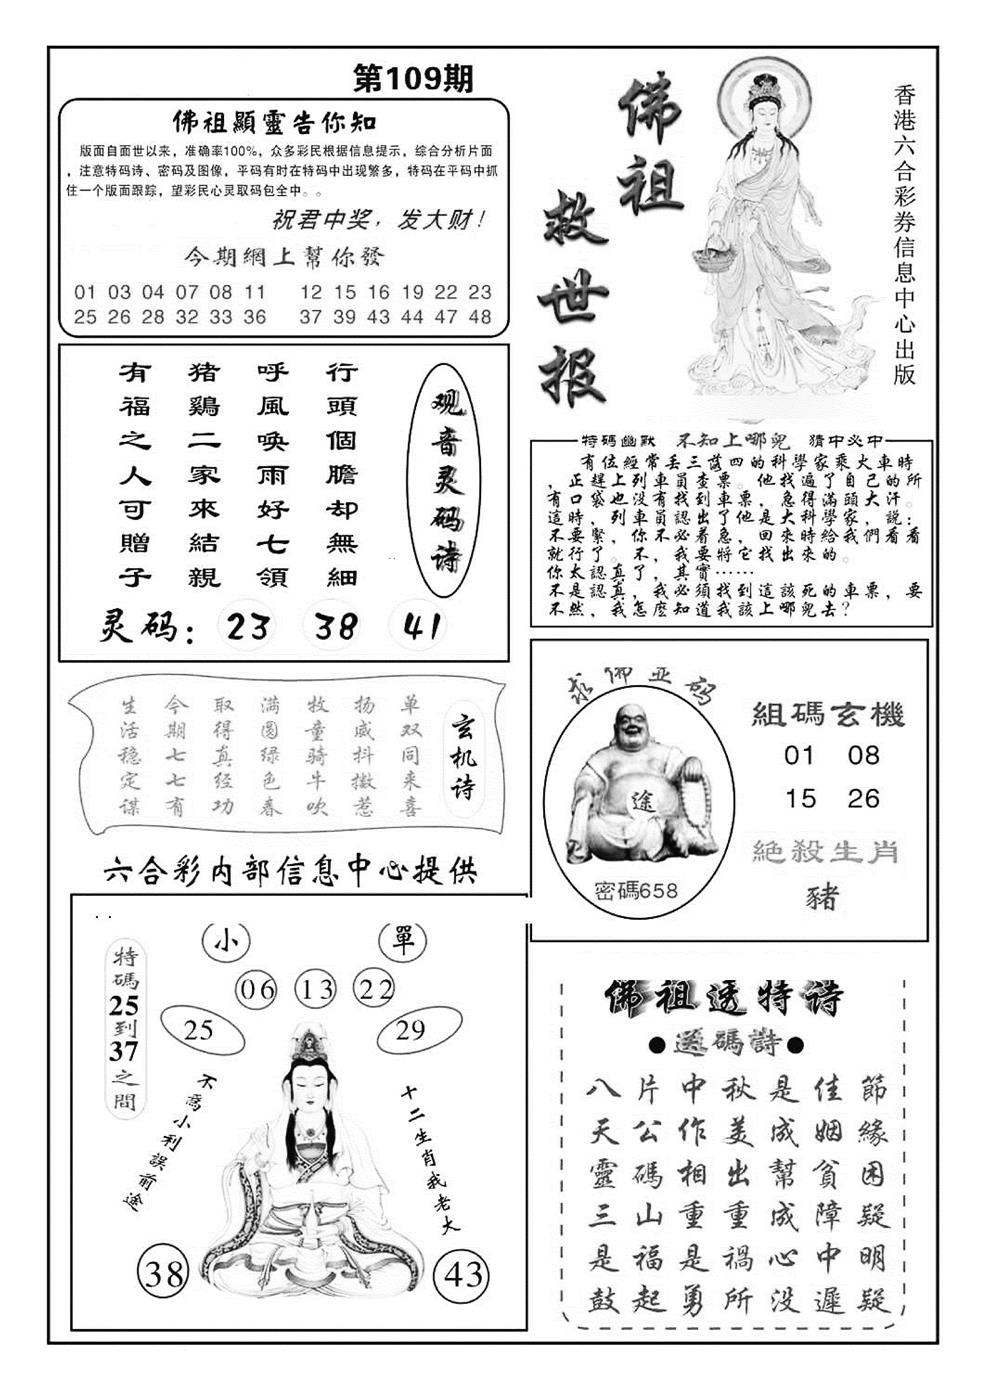 第109期
佛祖顯靈告你知
版面自面世以来，准确率100%，众多彩民根据信息提示，综合分析片面
，注意特码诗、密码及图像，平码有时在特码中出现繁多，特码在平码中抓
住一个版面跟踪，望彩民心灵取码包全中。。
祝君中奖，发大财！
今期網上幫你發
01 03 04 07 08 11 12 15 16 19 22 23
25 26 28 32 33 36 37 39 43 44 47 48
佛祖
救世报
香港六合彩券信息中心出版
观音灵码诗
行頭個膽却無細
呼風喚雨好七領
猪鷄二家來結親
有福之人可贈子
灵码：23 38 41
特碼幽默 不知上哪兒 猜中必中
有位經常丢三落四的科學家乘火車時
，正趕上列車員查票。他找遍了自己的所
有口袋也没有找到車票，急得滿頭大汗。
這時，列車員認出了他是大科學家，説：
不要緊，你不必着急，回來時給我們看看
就行了。不，我要將它找出來的。
你太認真了，其實……
不是認真，我必須找到這該死的車票，要
不然，我怎麽知道我該上哪兒去？
玄机诗
单双同来喜
扬威抖擞惹
牧童骑牛吹
满圆绿色春
取得真经功
今期七七有
生活稳定谋
求佛亚码
途
密碼658
組碼玄機
01 08
15 26
絶殺生肖
豬
六合彩内部信息中心提供
. .
小 單
06 13 22
25 29
特碼25到37之間
不爲小利誤前途
十二生肖我老大
38 43
佛祖透特诗
●送碼詩●
八片中秋是佳節
天公作美成姻緣
靈碼相出幫貧困
三山重重成障疑
是福是禍心中明
鼓起勇所没遲疑